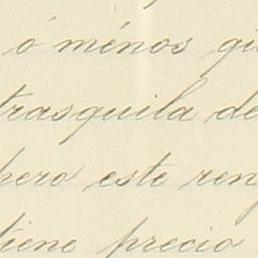 ó ménos
trasquila de
pero este ren
tiene precio